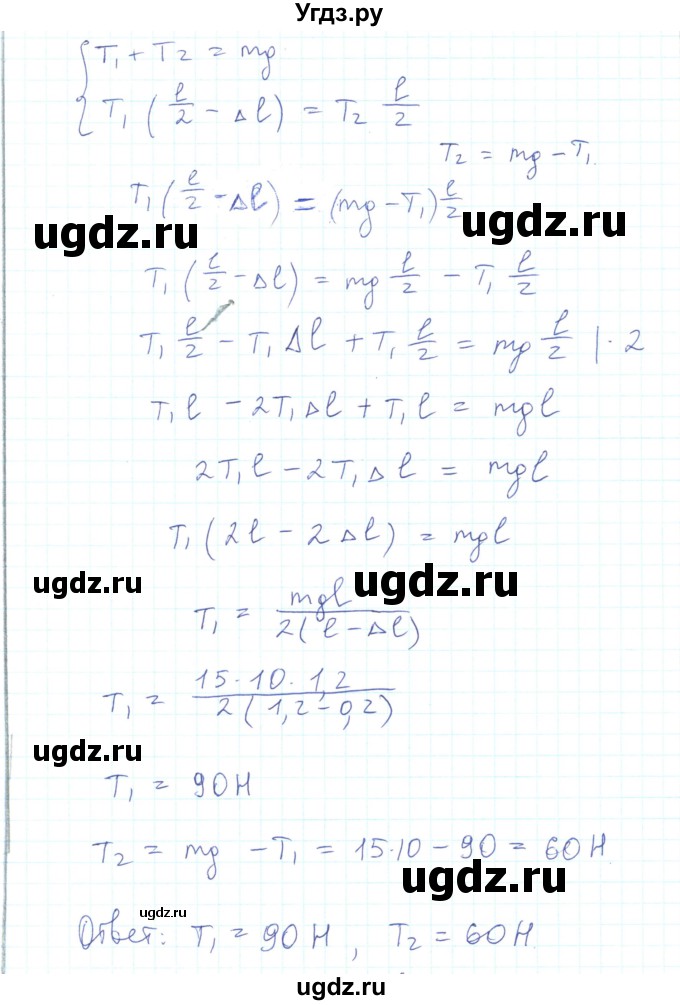 Угдз.ру
T₁ + T₂ = mg
T₁ (l/2 - Δl) = T₂ l/2
T₂ = mg - T₁.
T₁ (l/2 - Δl) = (mg - T₁) l/2
ugdz.ru ugdz.ru
T₁ (l/2 - Δl) = mg l/2 - T₁ l/2
T₁ l/2 - T₁ Δl + T₁ l/2 = mg l/2 | · 2
T₁l - 2T₁Δl + T₁l = mgl
2T₁l - 2T₁Δl = mgl
T₁ (2l - 2Δl) = mgl
ugdz.ru ugdz.ru
T₁ = mgl / 2(l - Δl)
T₁ = 15·10·1,2 / 2(1,2 - 0,2)
ugdz.ru
T₁ = 90 Н
T₂ = mg - T₁ = 15·10 - 90 = 60 Н
ugdz.ru
ugdz.ru
Ответ: T₁ = 90 Н, T₂ = 60 Н.
ugdz.ru